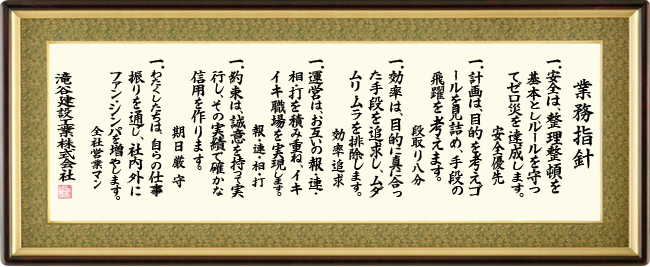 業務指針
一、安全は、整理整頓を
基本としルールを守っ
てゼロ災を達成します。
安全優先
一、計画は、目的を考えゴ
ールを見詰め、手段の
飛躍を考えます。
段取り八分
一、効率は、目的に真に合っ
た手段を追求し、ムダ
ムリ、ムラを排除します。
効率追求
一、運営は、お互いの報・連・
相・打を積み重ね、イキ
イキ職場を実現します。
報・連・相・打
一、約束は、誠意を持って実
行し、その実績で確かな
信用を作ります。
期日厳守
一、わたくしたちは、自らの仕事
振りを通し、社内外に
ファン・シンパを増やします。
全社営業マン
滝谷建設工業株式会社